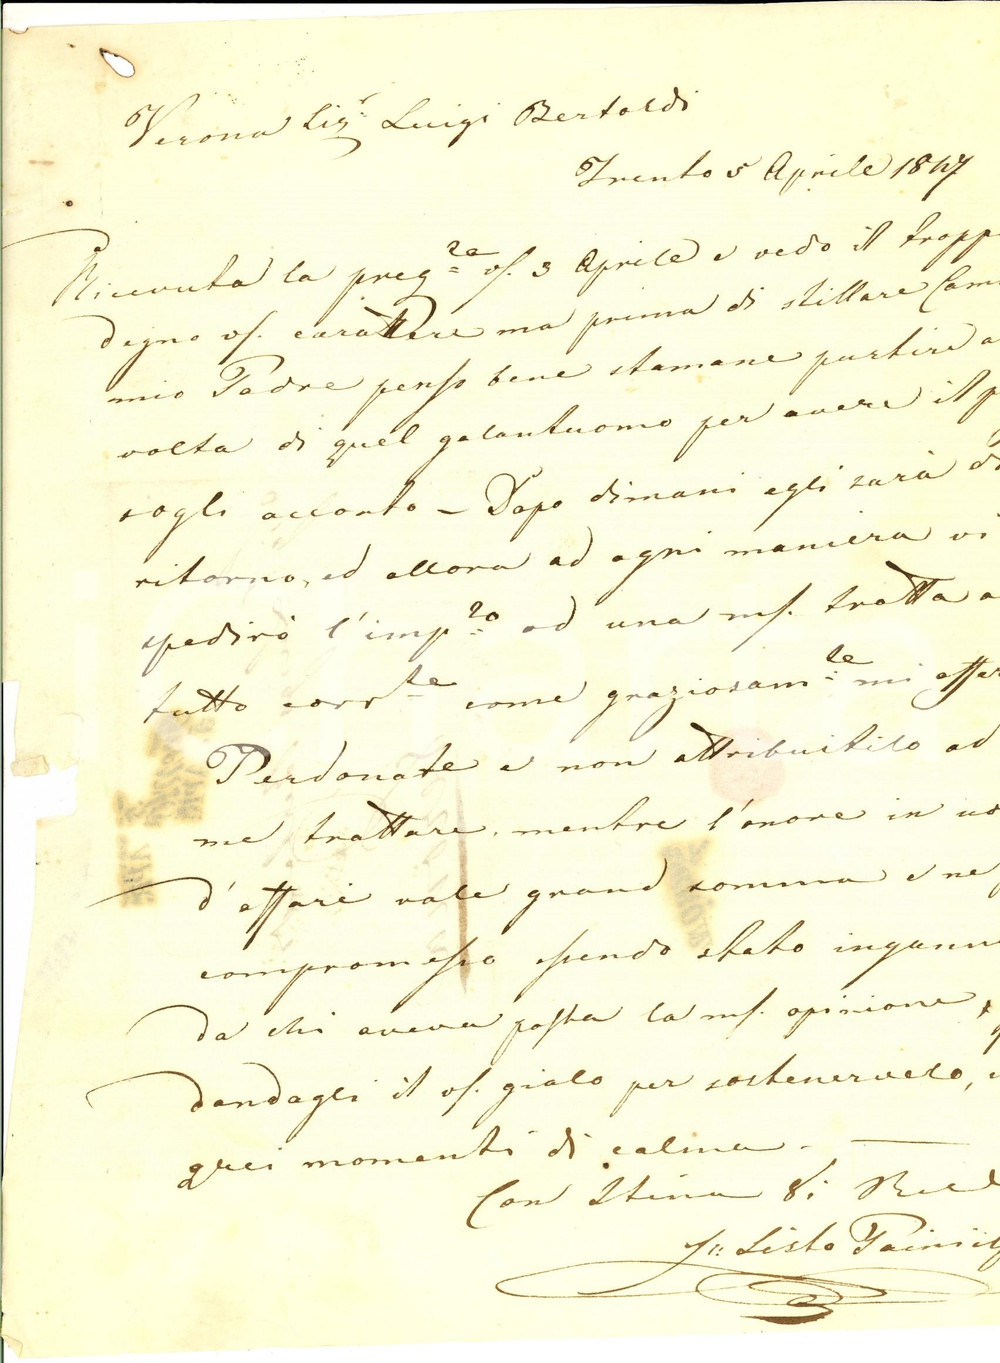 Verona Sigr. Luigi Bertoldi
Trento 5 Aprile 1847
Ricevuta la pregre vs. 3 Aprile e vedo il tropp
degno vs. carattere ma prima di stillare Cam
mio Padre penso bene stamane partire a
volta di quel galantuomo per avere il p
sogli acconto - Dopo dimani egli sarà di
ritorno, ed allora ad ogni maniera vi
spedirò l'impro od una ms. tratta a
tutto corrte come graziosamte mi offer
Perdonate e non attribuitelo ad
me trattare, mentre l'onore in
d'affari vale grand somma e ne
compromesso essendo stato ingann
da chi aveva posta la ms. opinione,
dandogli il vs. gialo per sostenervelo,
quei momenti di calma.
Con Stima
Sisto